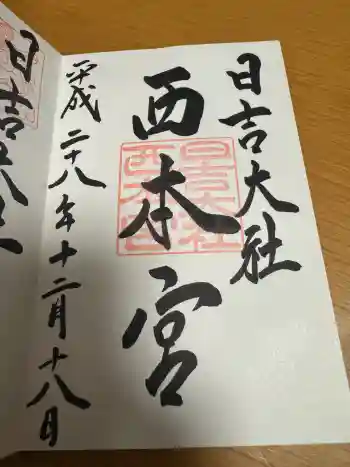 日吉大社
西本宮
平成二十八年十二月十八日
日吉大社
西本宮
日吉大